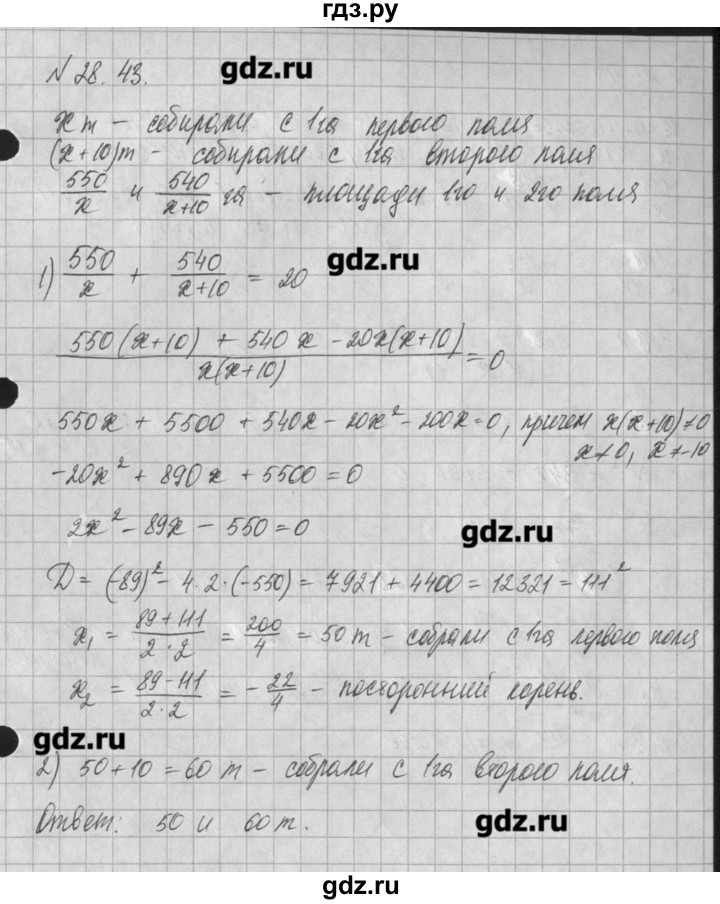 гдз.ру
N 28. 43.
gdz.ru
x т - собирали с 1га первого поля
(x+10)т - собирали с 1га второго поля
550/x и 540/(x+10) га - площади 1го и 2го поля
gdz.ru
1) 550/x + 540/(x+10) = 20
(550(x+10) + 540x - 20x(x+10))/(x(x+10)) = 0
550x + 5500 + 540x - 20x² - 200x = 0, причем x(x+10)≠0
x≠0, x≠-10
-20x² + 890x + 5500 = 0
2x² - 89x - 550 = 0
gdz.ru
D = (-89)² - 4·2·(-550) = 7921 + 4400 = 12321 = 111²
x₁ = (89+111)/(2·2) = 200/4 = 50 т - собрали с 1га первого поля
x₂ = (89-111)/(2·2) = -22/4 - посторонний корень.
gdz.ru
2) 50+10 = 60 т - собрали с 1га второго поля.
Ответ: 50 и 60 т.
gdz.ru
gdz.ru